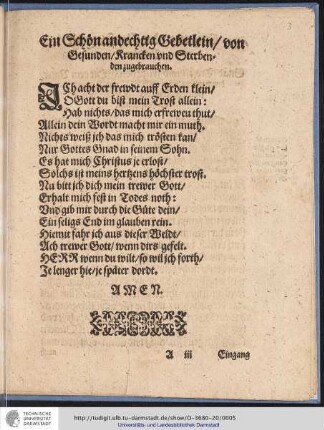 Ein Schön andechtig Gebetlein / von
Gesunden / Krancken vnd Sterben-
den zugebrauchen.
ICh acht der frewdt auff Erden klein /
O Gott du bist mein Trost allein:
Hab nichts / das mich erfrewen thut /
Allein dein Wordt macht mir ein muth.
Nichts weiß ich das mich trösten kan /
Nur Gottes Gnad in seinem Sohn.
Es hat mich Christus je erlost /
Solchs ist meins hertzens höchster trost.
Nu bitt ich dich mein trewer Gott /
Erhalt mich fest in Todes noth:
Vnd gib mir durch die Güte dein /
Ein seligs End im glauben rein.
Hiemit fahr ich aus dieser Weldt /
Ach trewer Gott / wenn dirs gefelt.
HERR wenn du wilt / so wil ich forth /
Je lenger hie / je später dordt.
A M E N.
A iii Eingang
TECHNISCHE
UNIVERSITÄT
DARMSTADT
http://tudigit.ulb.tu-darmstadt.de/show/O-3680-20/0005
Universitäts- und Landesbibliothek Darmstadt